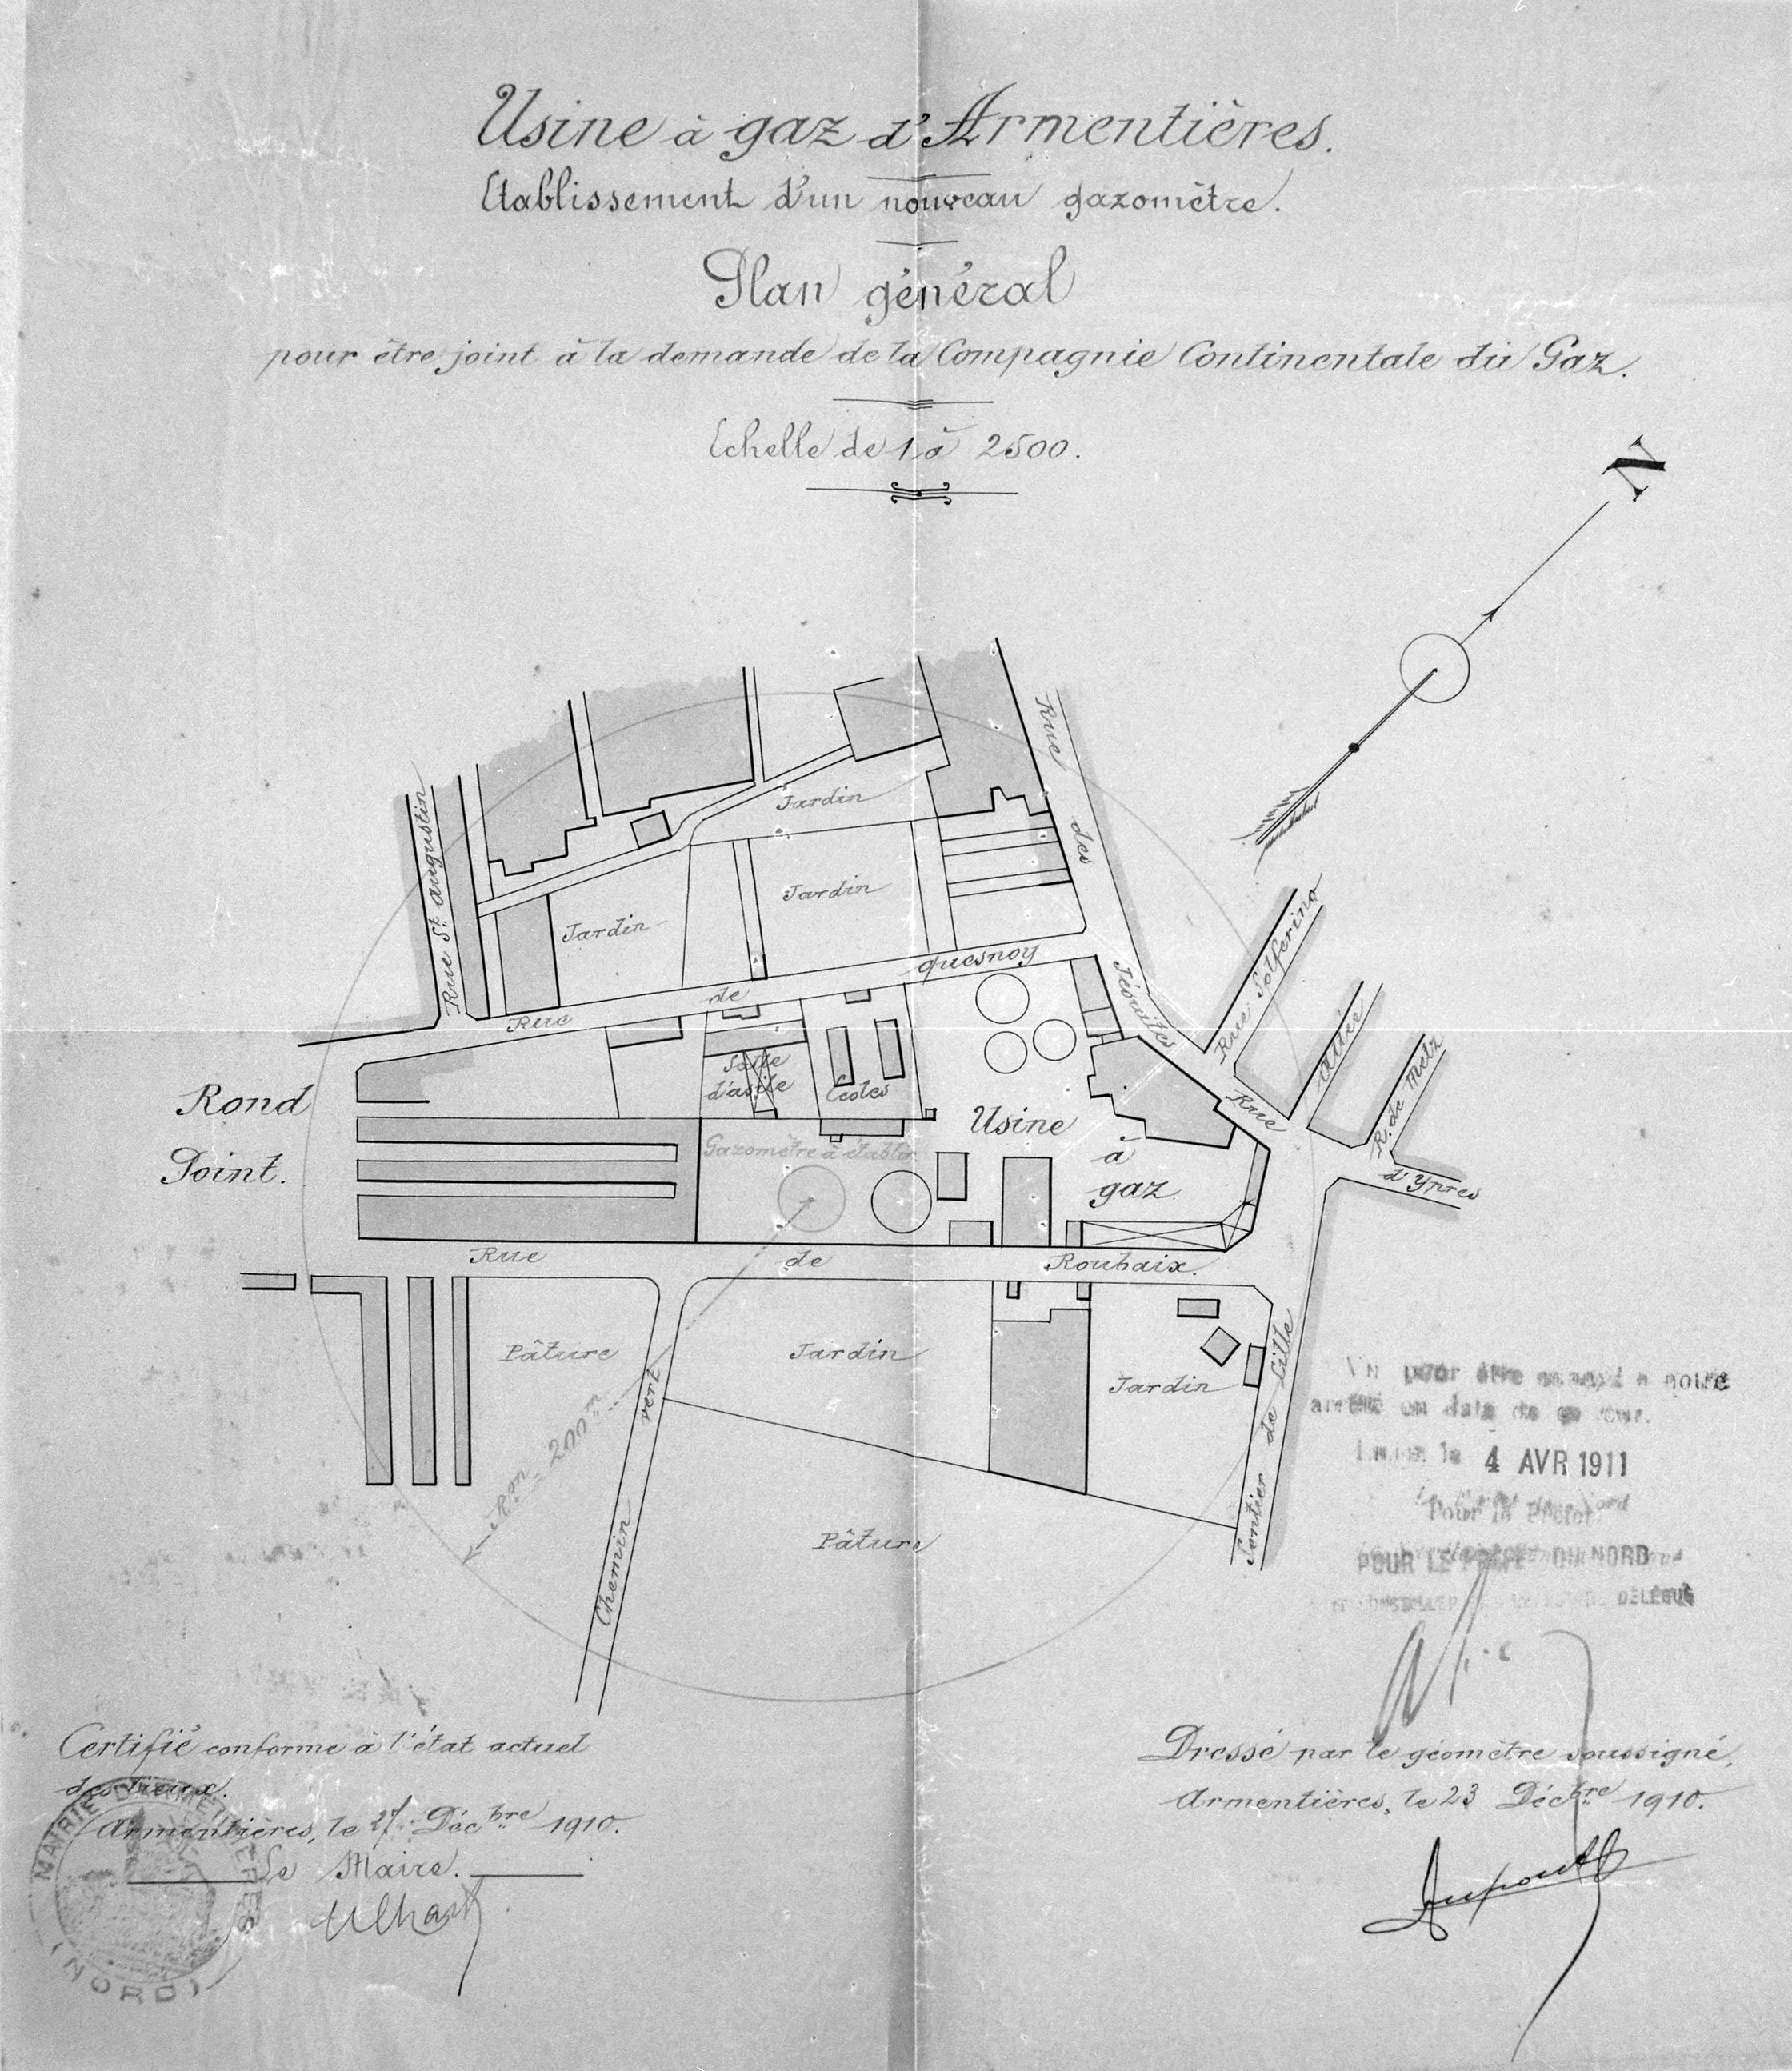 Usine à gaz d'Armentières.
Etablissement d'un nouveau gazomètre.
Plan général
pour être joint à la demande de la Compagnie Continentale du Gaz.
Echelle de 1 à 2500.
N
Rue des Jésuites
Jardin
Rue St. augustin
Jardin
Jardin
Rue Solferino
Rue de quesnoy
Allée
R. de Metz
Rue d'Ypres
Rond Point.
Salle d'asile
Ecoles
Usine à gaz
Gazomètre à établir
Rue de Roubaix.
Pâture
Jardin
Jardin
Chemin vert
Ron = 200m
Sentier de Lille
Pâture
pour être à notre
date de
le 4 AVR 1911
Pour le Préfet
POUR LE DU NORD
DÉLÉGUÉ
Certifié conforme à l'état actuel
des lieux.
Armentières, le 27 Décbre 1910.
Le Maire.
MAIRIE D'ARMENTIÈRES
(NORD)
Dressé par le géomètre soussigné,
Armentières, le 23 Décbre 1910.